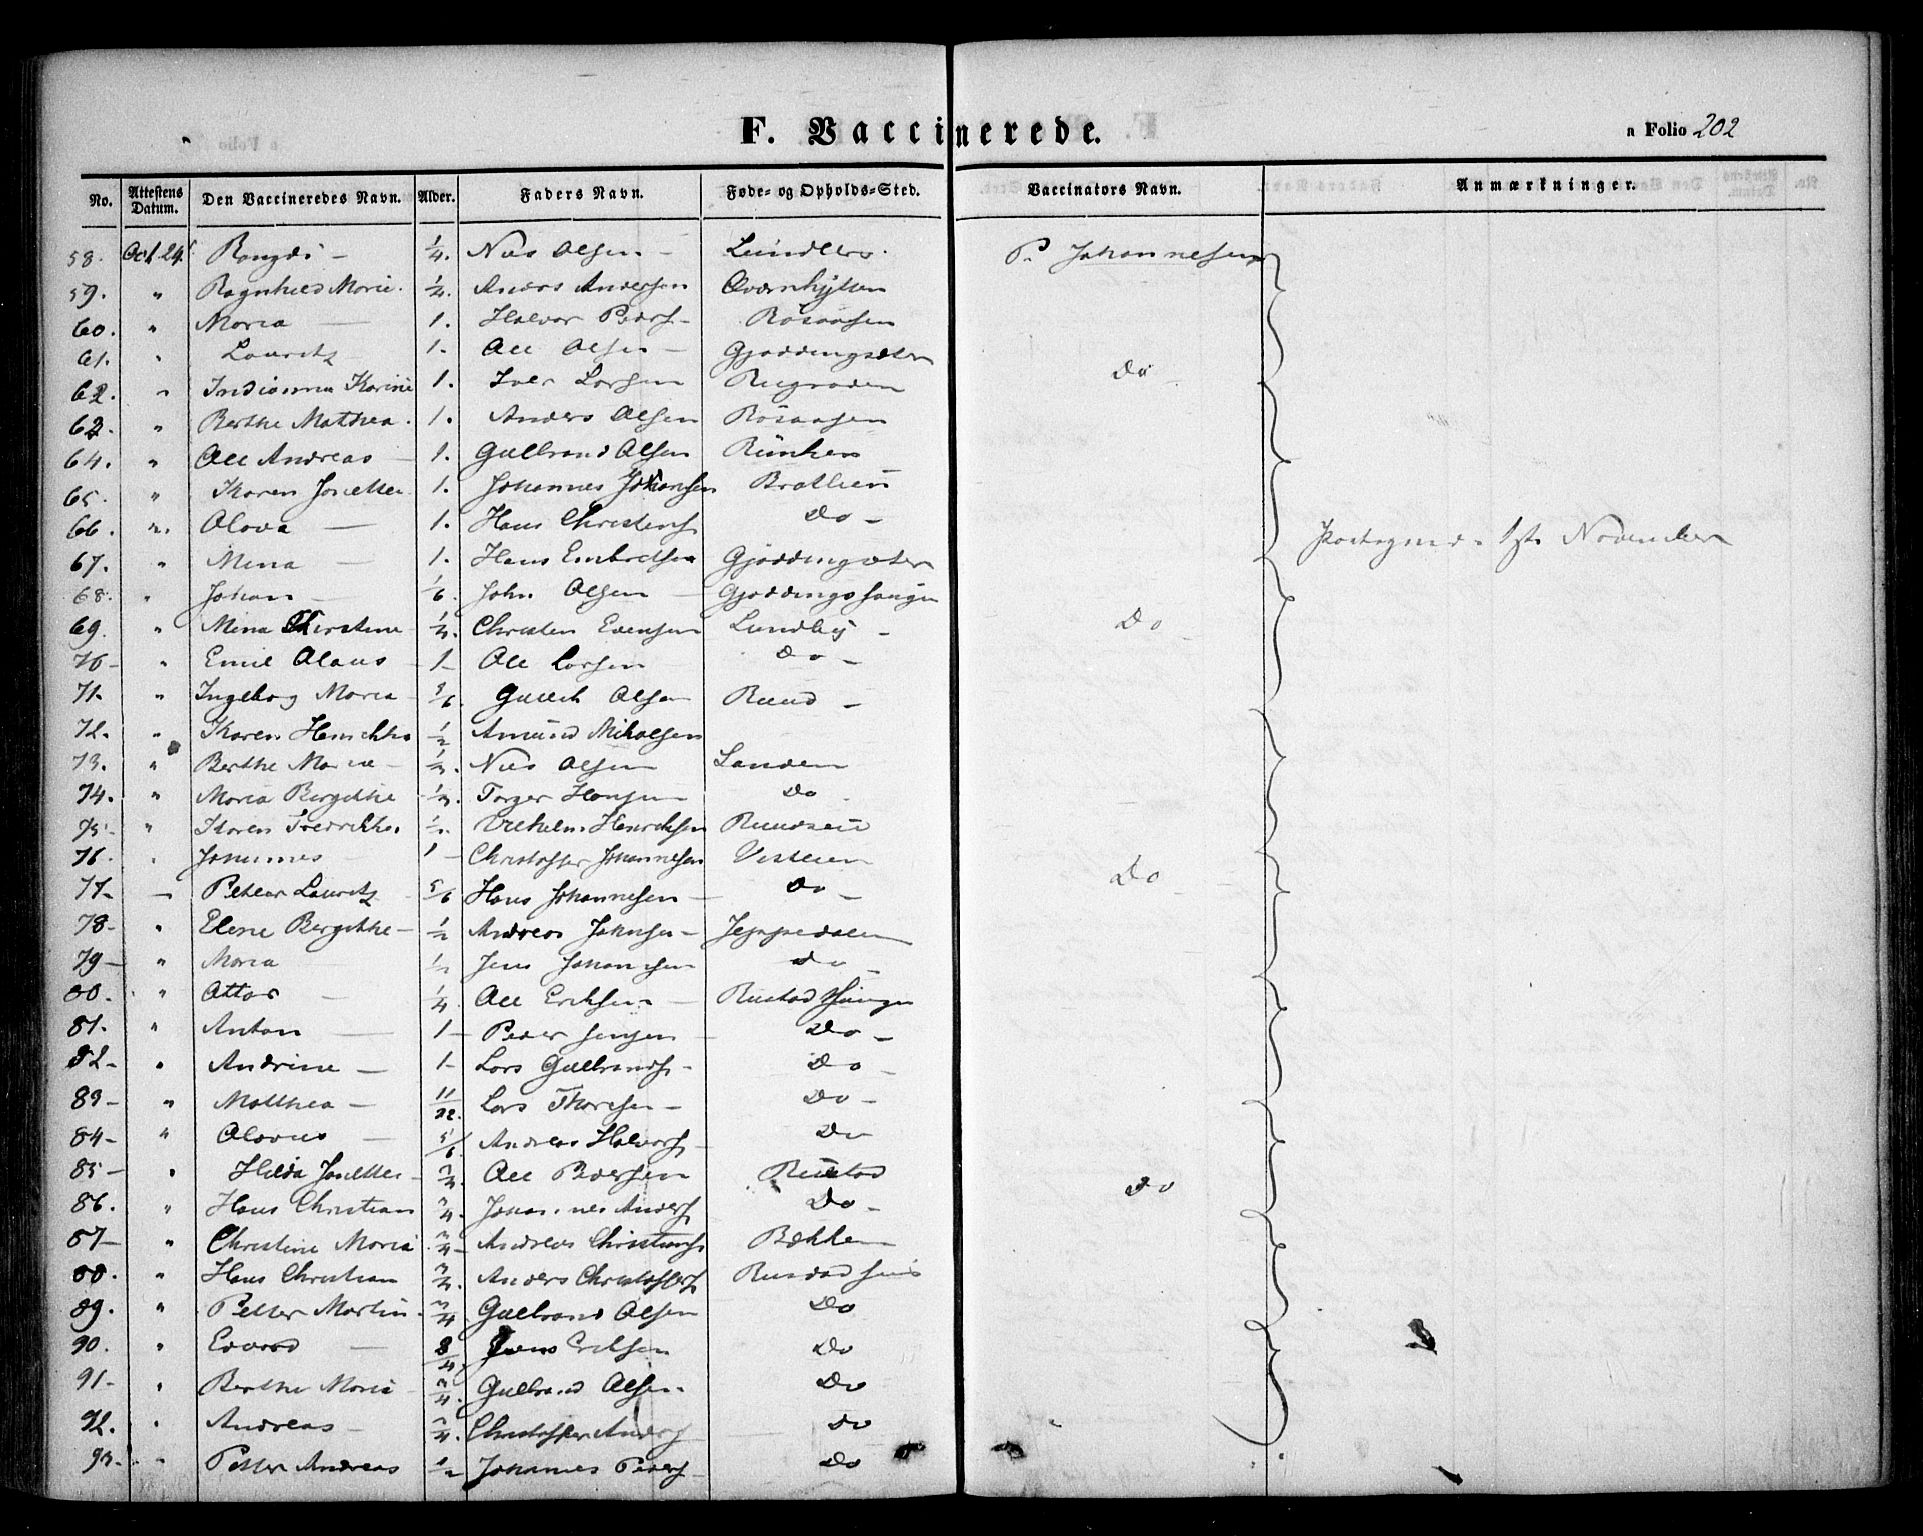 F. Vaccinerede.
a Folio 202
No. Attestens Datum. Den Vaccineredes Navn. Alder. Faders Navn. Føde- og Opholds-Sted. Vaccinators Navn. Anmærkninger.
58. Oct 24 1/4. Nils Olsen - P. Johannesen
59. " Ragnhild Marie. Anders Andersen Qværnhytten
60. " Maria 1. Halvor Peders- Rösaasen
61. " Lauritz 1. Ole Olsen - Gjøddingsæter Do
62. " Indianna Karine 1. Iver Larsen
63. " Berthe Mathea. 1. Anders Olsen Rösaasen
64. " Ole Andreas - 1. Gulbrand Olsen Rünken
65. " Karen Josette 1. Johannes Johansen Bratlien
66. " Olava 1. Hans Christens Do -
67. " Mina - 1. Hans Embretsen Gjøddingsæter November
68. " Johan - 1/6. John Olsen Gjøddingshaugen
69. " Mina Christine Christen Evensen Lundby - Do
70 - " Emil Olaus 1 - Ole Larsen Do -
71. " Ingeborg Maria - Gullik Olsen Ruud -
72. " Karen Henrikke 1/2 Amund Nikolsen
73. " Berthe Marie - Nils Olsen Sanden
74. " Maria Bergithe Torger Hansen Do
75 - " Karen Fredrikke Vilhelm Henriksen Ruudseie
76. Johannes 1 - Christoffer Johannesen Vestlien
77 - Petter Lauritz 5/6 Hans Johannesen - Do - Do
78 - " Elene Bergithe - 1/2 Andreas Johnsen - Jeppedalen
79 - " Maria Jens Johannesen Do -
80. " Ottar 1/4 Ole Eriksen - Rustadhaugen
81. " Anton 1 - Peder Jensen Do -
82 - " Andrine - 1 - Lars Gulbrands - Do -
83 - " Mathea - Lars Thoresen - Do -
84 - " Olavus 5/6 Andreas Halvors - Do
85 - " Hilda Josette - Ole Pedersen Rustad Do
86. " Hans Christian Johannes Anders Do -
87 - " Christine Maria Andreas Christians Bækken
88. " Hans Christian Anders Christoffers
89. " Petter Martin Gulbrand Olsen Do
90. " Edvard Jens Eriksen Do
91 - " Berthe Maria Gulbrand Olsen Do
92. " Andreas Christoffer Anders Do
93 - " Petter Andreas 1/2 Johannes Peders - Do